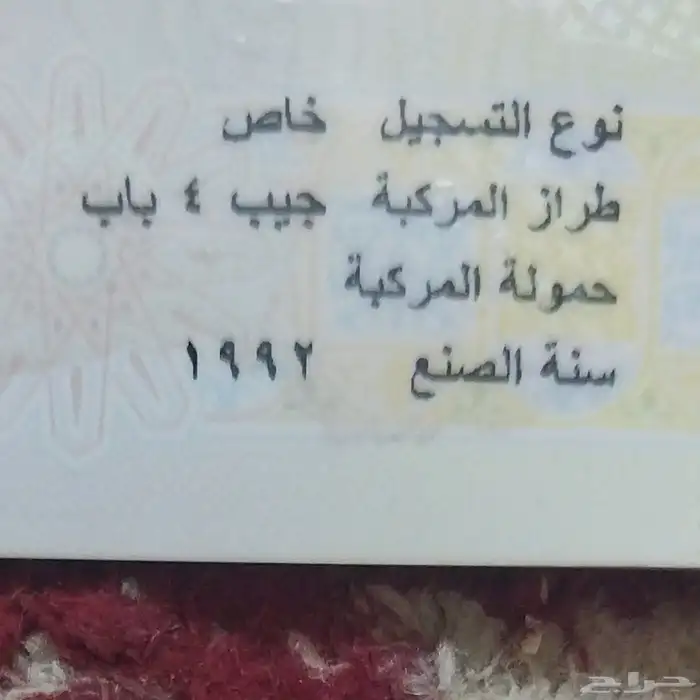 نوع التسجيل خاص
طراز المركبة جيب ٤ باب
حمولة المركبة
سنة الصنع ١٩٩٢
حراج